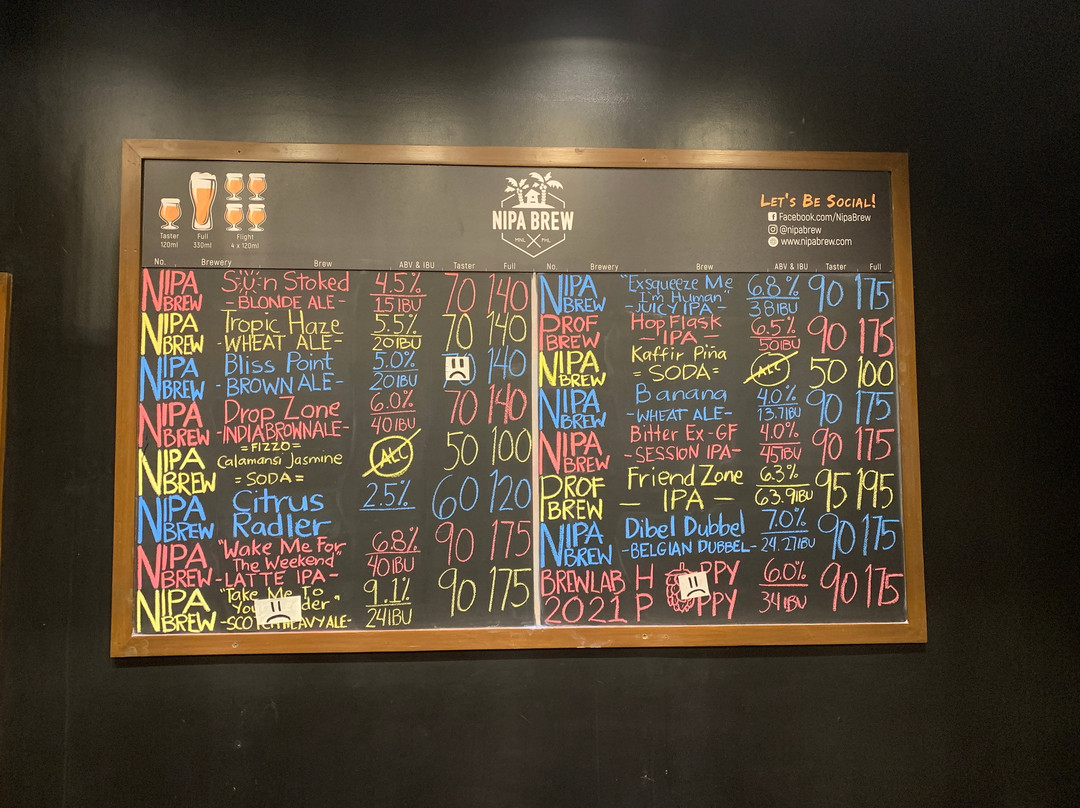 Taster
120ml
Full
330ml
Flight
4 x 120ml
NIPA BREW
MNL PHL
LET'S BE SOCIAL!
Facebook.com/NipaBrew
@nipabrew
www.nipabrew.com
No. Brewery Brew ABV & IBU Taster Full
NIPA BREW Sun Stoked -BLONDE ALE- 4.5% 15IBU 70 140
NIPA BREW Tropic Haze -WHEAT ALE- 5.5% 20IBU 70 140
NIPA BREW Bliss Point -BROWN ALE- 5.0% 20IBU 140
NIPA BREW Drop Zone -INDIA BROWN ALE- 6.0% 40IBU 70 140
NIPA BREW =FIZZO= Calamansi Jasmine =SODA= ALC 50 100
NIPA BREW Citrus Radler 2.5% 60 120
NIPA BREW "Wake Me For The Weekend" -LATTE IPA- 6.8% 40IBU 90 175
NIPA BREW "Take Me To You der" -SCOTCH HEAVY ALE- 9.1% 24IBU 90 175
No. Brewery Brew ABV & IBU Taster Full
NIPA BREW "Exsqueeze Me I'm Human" -JUICY IPA- 6.8% 38IBU 90 175
PROF BREW Hop Flask -IPA- 6.5% 50IBU 90 175
NIPA BREW Kaffir Piña =SODA= ALC 50 100
NIPA BREW Banana -WHEAT ALE- 4.0% 13.7IBU 90 175
NIPA BREW Bitter Ex-GF -SESSION IPA- 4.0% 45IBU 90 175
PROF BREW Friend Zone -IPA- 6.3% 63.9IBU 95 195
NIPA BREW Dibel Dubbel -BELGIAN DUBBEL- 7.0% 24.27IBU 90 175
BREWLAB 2021 H PPY P PPY 6.0% 34IBU 90 175